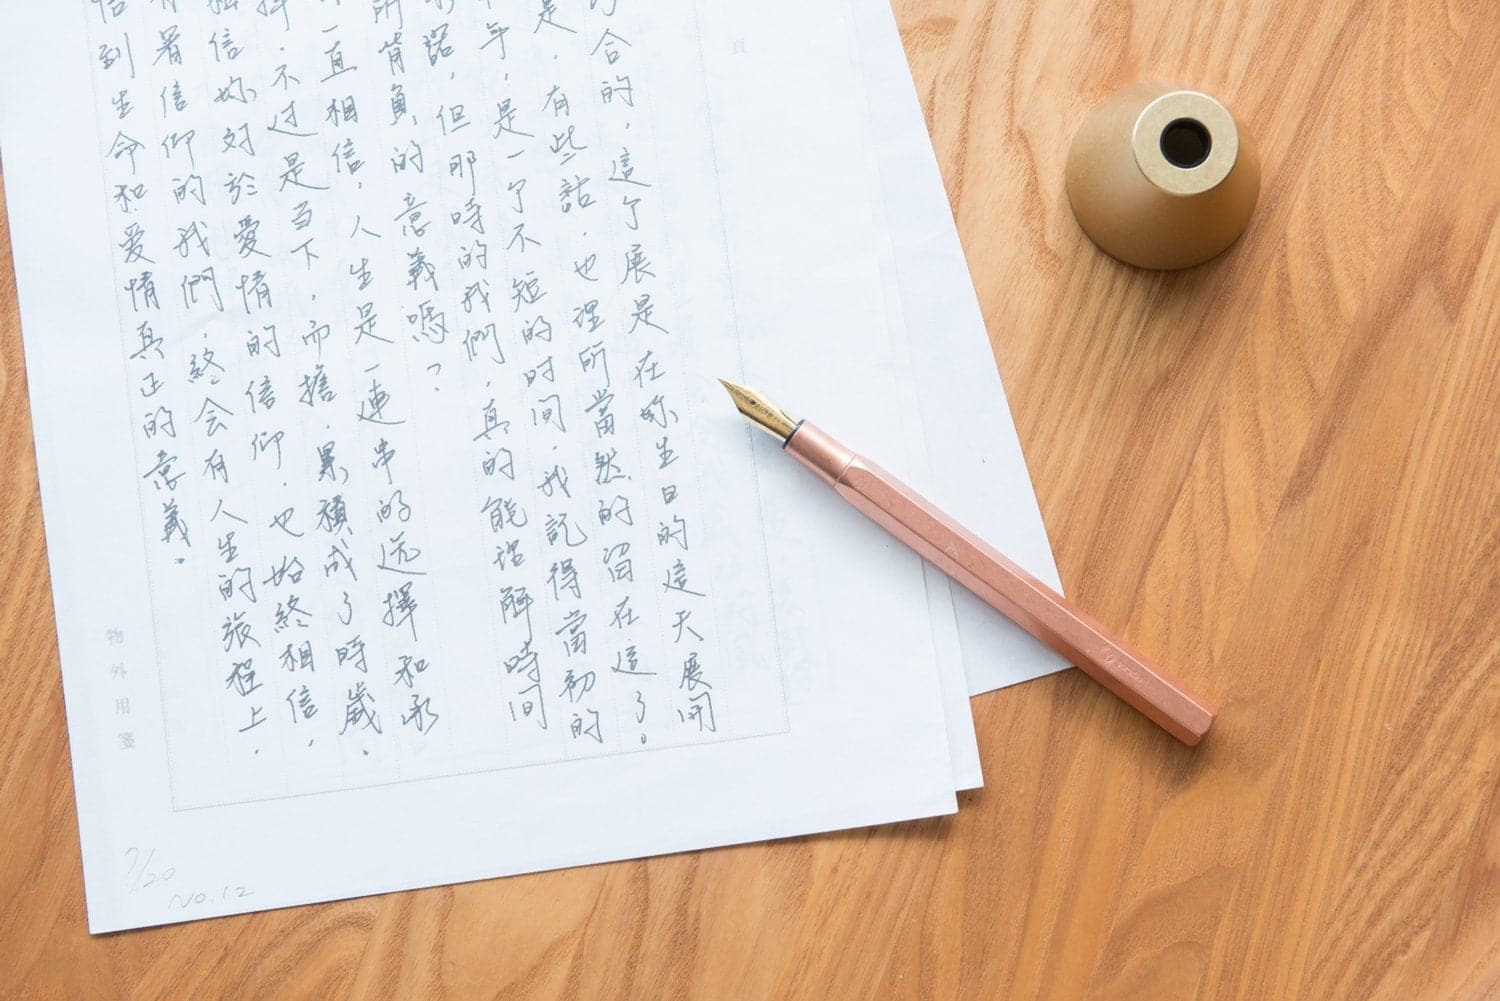 合的，這个展是在妳生日的這天展開
是，有些話，也理所當然的留在這了。
年，是一个不短的时间，我記得當初的
諾，但那時的我們，真的能理解時間
所背負的意義嗎？
一直相信，人生是一連串的选擇和承
不过是当下，而擔，累積成了時歲，
相信妳对於愛情的信仰，也始終相信，
有着信仰的我們，終会有人生的旅程上，
悟到生命和爱情真正的意義。
物外用箋
7/20
No.12